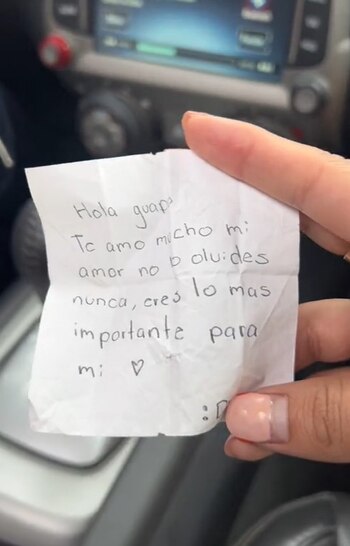 Hola guap°
Te amo mucho mi
amor no o oluides
nunca, eres lo mas
importante para
mi ♡
:D